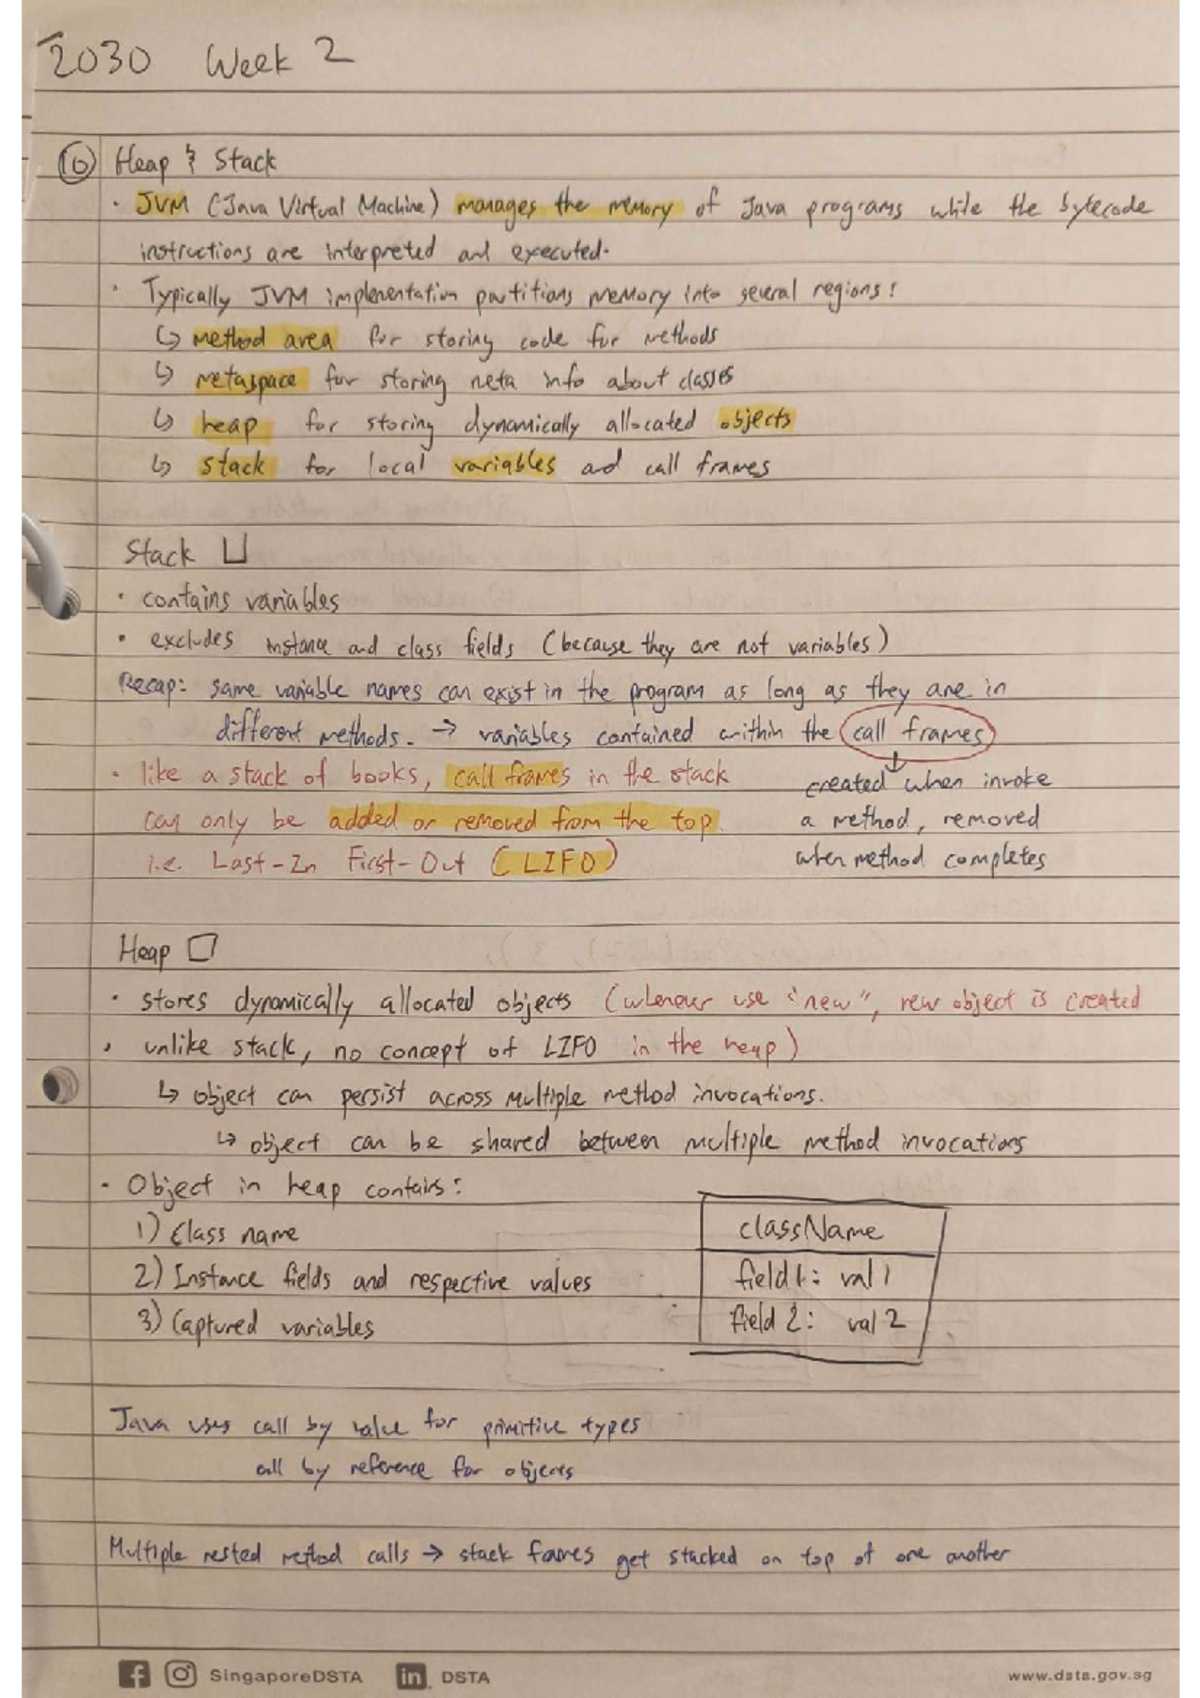 2030 Week 2
10 Heap & Stack
• JVM (Java Virtual Machine) manages the memory of Java programs while the bytecode
instructions are interpreted and executed.
• Typically JVM implementation partitions memory into several regions:
↳ method area for storing code for methods
↳ metaspace for storing meta info about classes
↳ heap for storing dynamically allocated objects
↳ stack for local variables and call frames
Stack
• contains variables
• excludes instance and class fields (because they are not variables)
Recap: same variable names can exist in the program as long as they are in
different methods. → variables contained within the call frames
• like a stack of books, call frames in the stack
can only be added or removed from the top.
i.e. Last-In First-Out (LIFO)
created when invoke
a method, removed
when method completes
Heap
• stores dynamically allocated objects (whenever use "new", new object is created
• unlike stack, no concept of LIFO in the heap)
↳ object can persist across multiple method invocations.
↳ object can be shared between multiple method invocations
• Object in heap contains:
1) Class name
2) Instance fields and respective values
3) Captured variables
className
field1: val1
field2: val2
Java uses call by value for primitive types
call by reference for objects
Multiple nested method calls → stack frames get stacked on top of one another
SingaporeDSTA in DSTA www.dsta.gov.sg